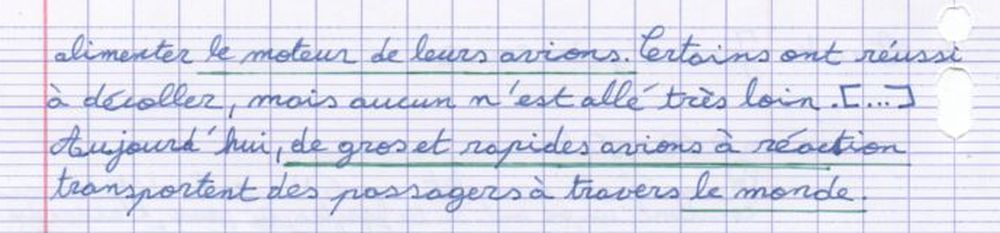 alimenter le moteur de leurs avions. Certains ont réussi
à décoller, mais aucun n'est allé très loin. [...]
Aujourd'hui, de gros et rapides avions à réaction
transportent des passagers à travers le monde.